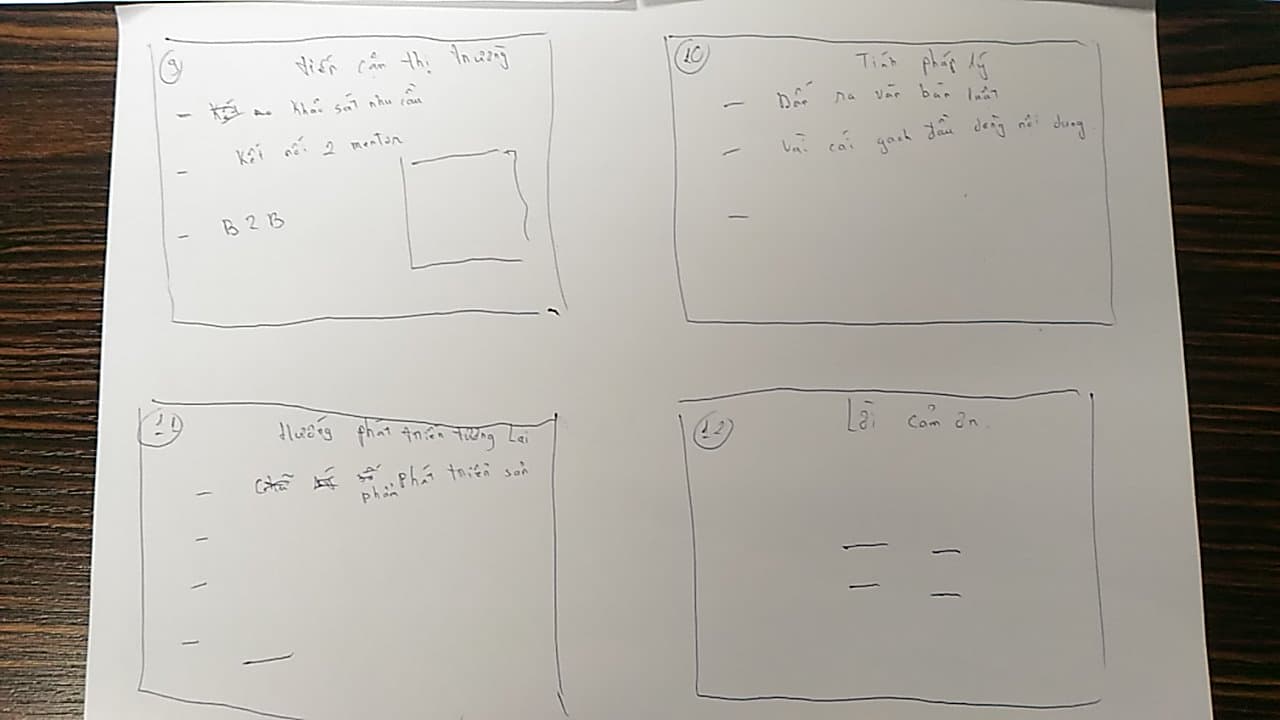 9
tiếp cận thị trường
- khảo sát nhu cầu
- Kết nối 2 mentor
- B2B
10
Tính pháp lý
- Dẫn ra văn bản luật
- Vài cái gạch đầu dòng nội dung
-
11
Hướng phát triển tương lai
- phát triển sản
phẩm
-
-
-
12
Lời cảm ơn